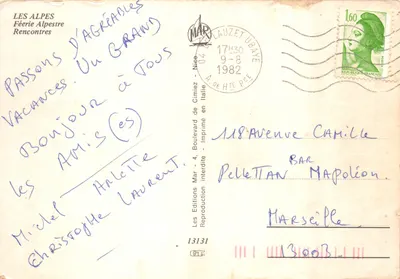 LES ALPES
Féerie Alpestre
Rencontres
PASSONS D'AGRÉABLES
VACANCES. UN GRAND
BONJOUR à TOUS
les AMIS(es)
Michel Arlette
Christophe LAURENT.
MAR
LAUZET UBAYE
17H30
9-8
1982
Les Editions Mar - 4, Boulevard de Cimiez - Nice
Reproduction interdite - Imprimé en Italie
13131
1,60
118 AVENUE CAMILLE
BAR
PELLETTAN NAPOLÉON.
MARSEILLE